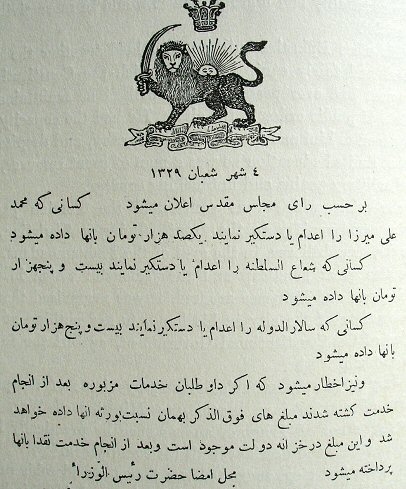 ٤ شهر شعبان ١٣٢٩
بر حسب رای مجلس مقدس اعلان میشود کسانی که محمد
علی میرزا را اعدام یا دستکیر نمایند یکصد هزار تومان بانها داده میشود
کسانی که شعاع السلطنه را اعدام یا دستکیر نمایند بیست و پنجهزار
تومان بانها داده میشود
کسانی که سالار الدوله را اعدام یا دستکیر نمایند بیست و پنج هزار تومان
بانها داده میشود
و نیز اخطار میشود که اکر داو طلبان خدمات مزبوره بعد از انجام
خدمت کشته شدند مبلغ های فوق الذکر بهمان نسبت بورثه انها داده خواهد
شد و این مبلغ در خزانه دولت موجود است و بعد از انجام خدمت نقدا بانها
پرداخته میشود محل امضا حضرت رئیس الوزراء